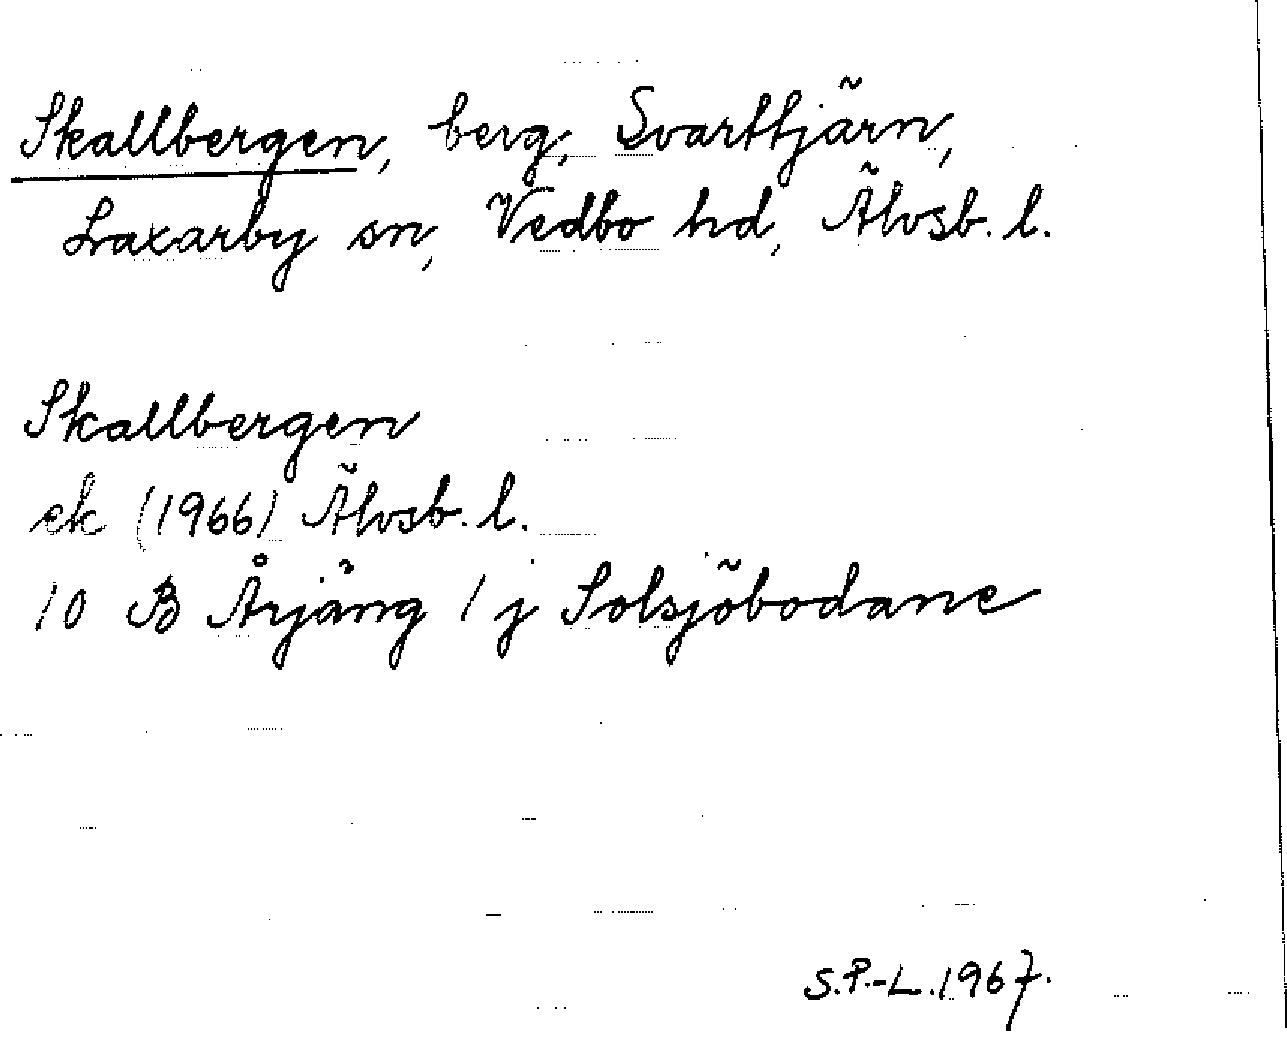 Skallbergen, berg, Svarttjärn,
Laxarby sn, Vedbo hd, Älvsb. l.
Skallbergen
ek (1966) Älvsb. l.
10 B Årjäng 1 j Solsjöbodane
S.P.-L. 1967.